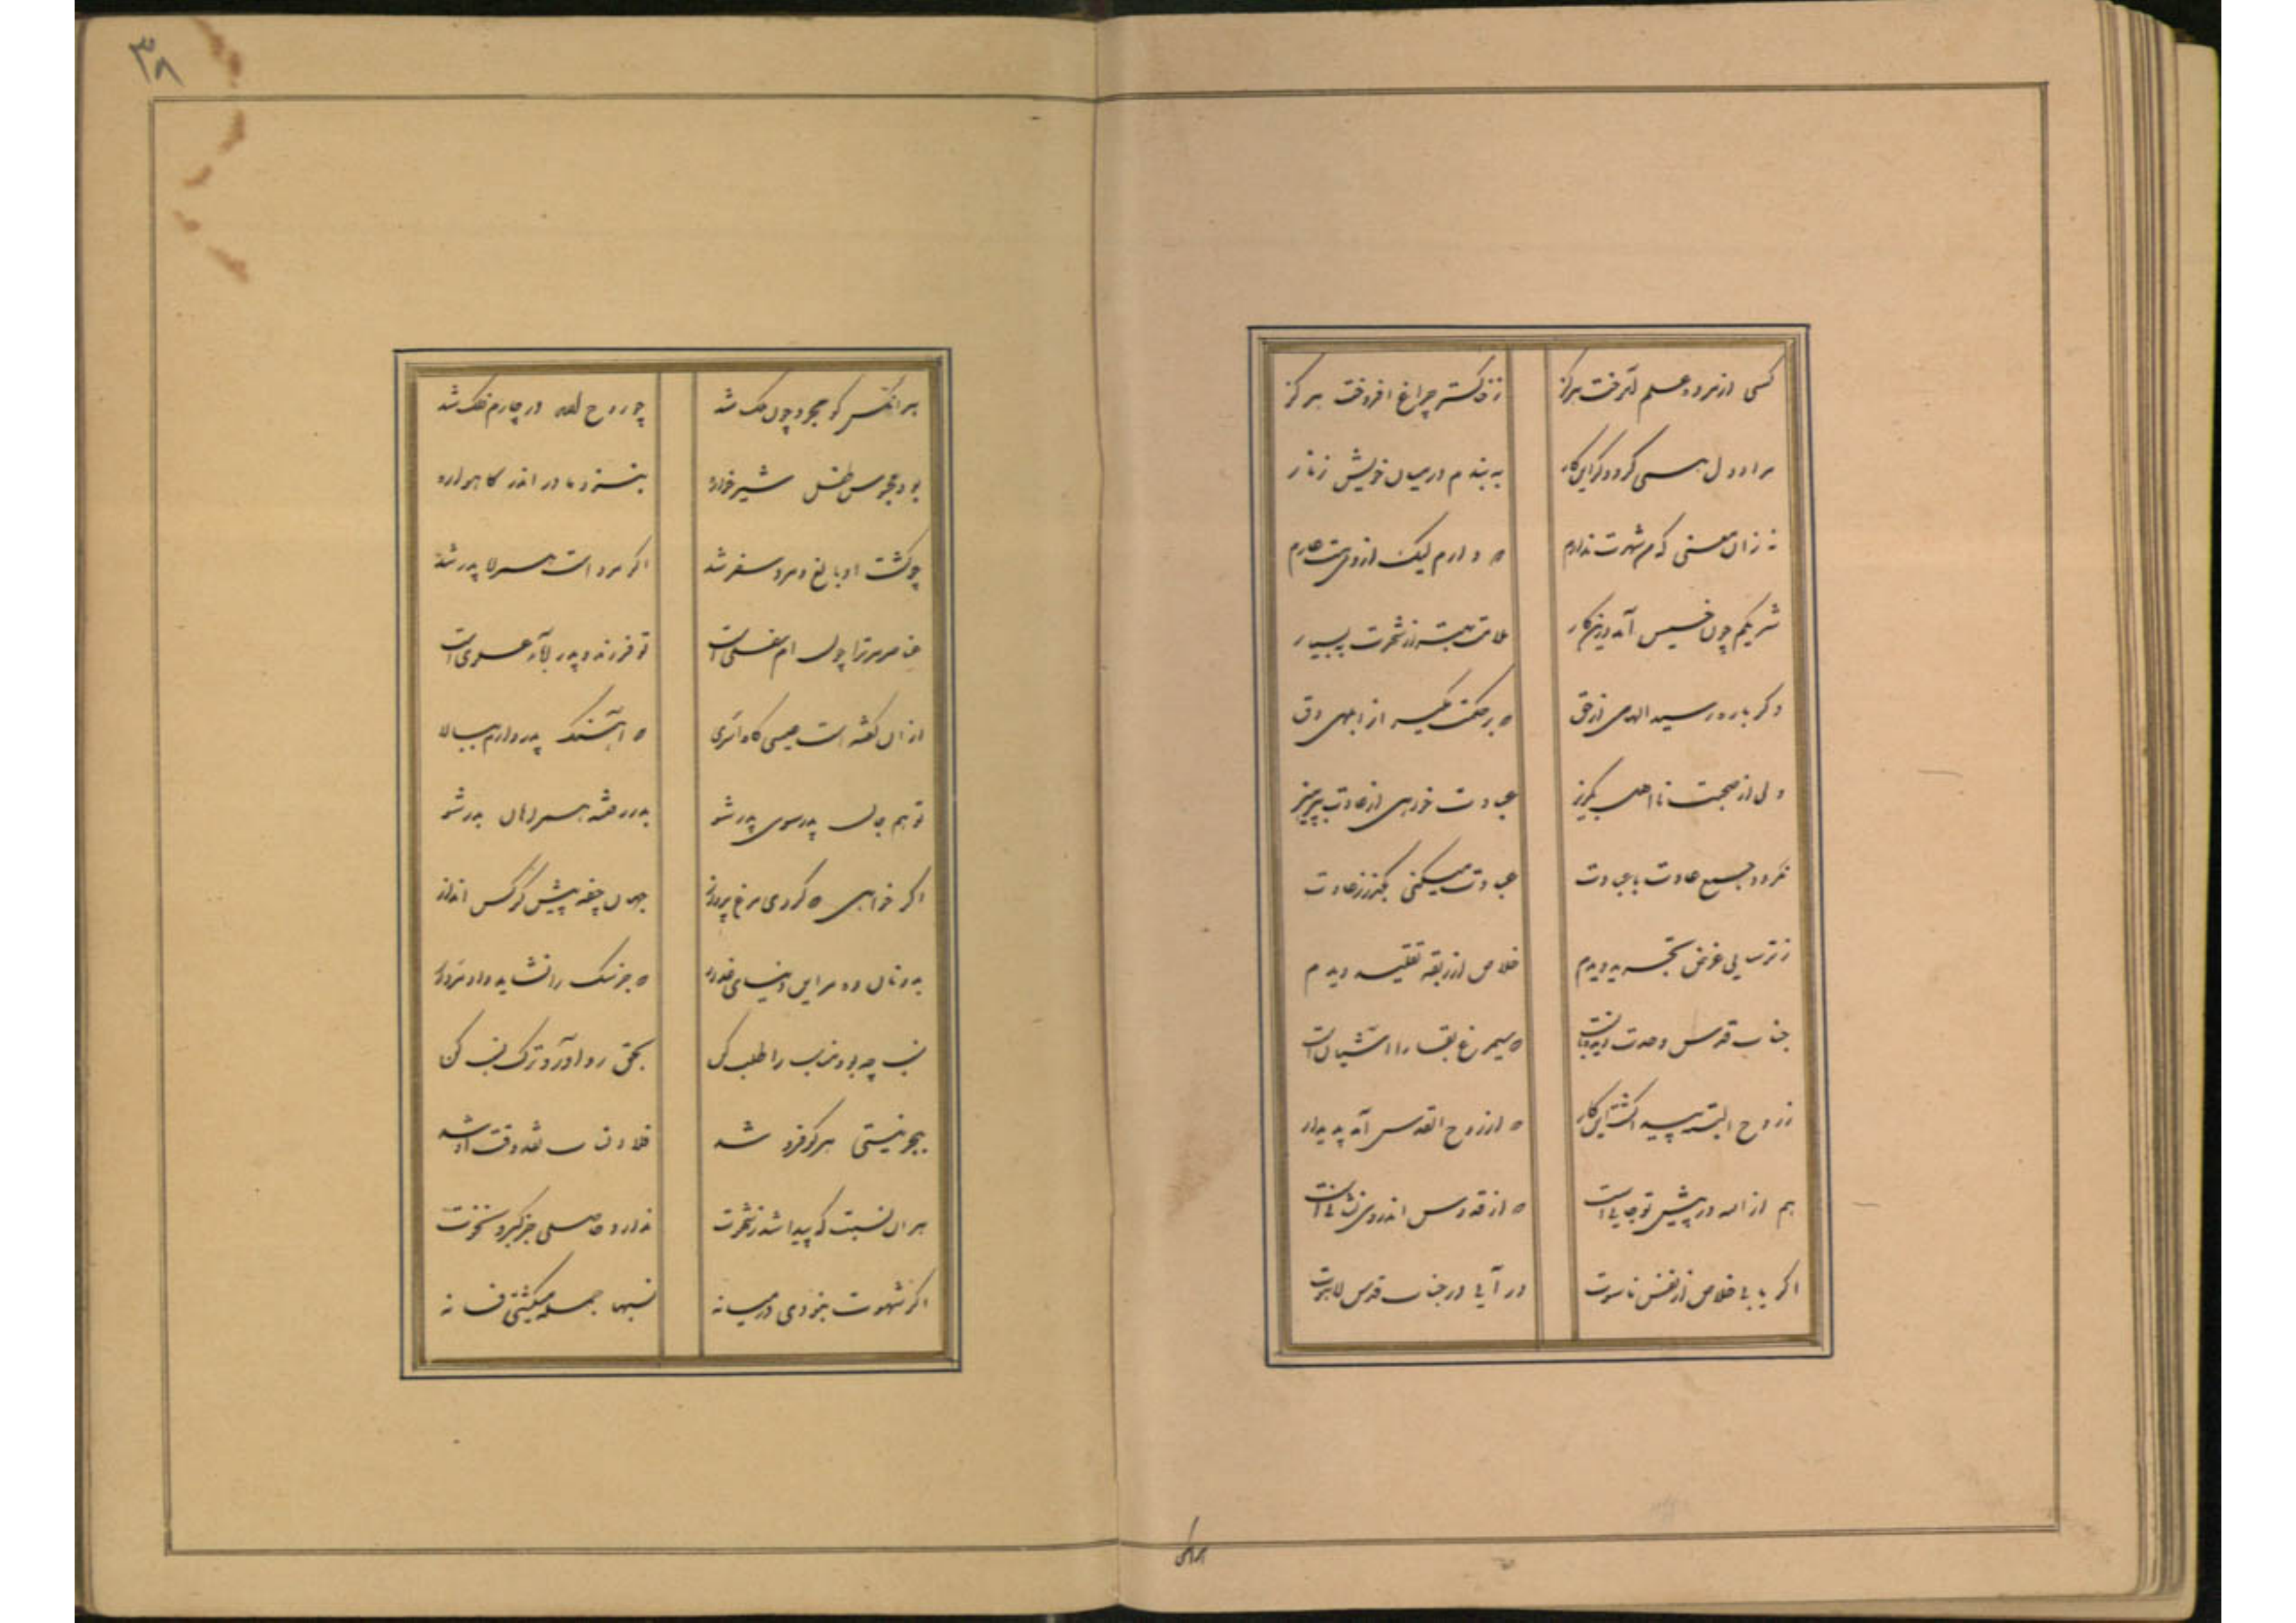 کسی از مرده علم آموخت هرگز ز خاکستر چراغ افروخت هرگز
مرا در دل همی گردد کزین کار به بندم در میان خویش زنار
نه زان معنی که من شهرت ندارم که دارم لیک از وی هست عارم
شریکم چون خسیس آمد درین کار بهتر از شهرت ببسیار
دگر باره رسید الهامی از حق که بر حکمت مگیر از ابلهی دق
ولی از صحبت نااهل بگریز عبادت خواهی از عادت بپرهیز
نگردد جمع عادت با عبادت عبادت میکنی بگذر ز عادت
ز ترسایی غرض تجرید دیدم خلاص از ربقه تقلید دیدم
جناب قدس وحدت دیر جانست که سیمرغ بقا را آشیان است
ز روح الله پیدا گشت این کار که از روح القدس آمد پدیدار
هم از الله در پیش تو جانی است که از قدوس اندر وی نشانی است
اگر یابی خلاص از نفس ناسوت در آیی در جناب قدس لاهوت
هرانکس
۳۸
هر انکس کو مجرد چون ملک شد چو روح الله در چارم فلک شد
بود محبوس طفل شیرخواره بنزد مادر اندر کاهواره
چو گشت او بالغ و مرد سفر شد اگر مرد است همراه پدر شد
عناصر مر ترا چون ام سفلی است تو فرزند و پدر آباء علوی است
از ان گفته است عیسی گاه اسری که آهنگ پدر دارم ببالا
تو هم جان پدر سوی پدر شو بدر رفتند همراهان بدر شو
اگر خواهی که گردی مرغ پرواز جهان جیفه پیش کرکس انداز
بدونان ده مر این دنیای غدار که جز سگ را نشاید داد مردار
نسب چه بود مناسب را طلب کن بحق رو آور و ترک نسب کن
ببحر نیستی هر کو فرو شد فلا انساب نقد وقت او شد
هر ان نسبت که پیدا شد ز شهوت ندارد حاصلی جز کبر و نخوت
اگر شهوت نبودی در میانه نسبها جمله میگشتی فسانه